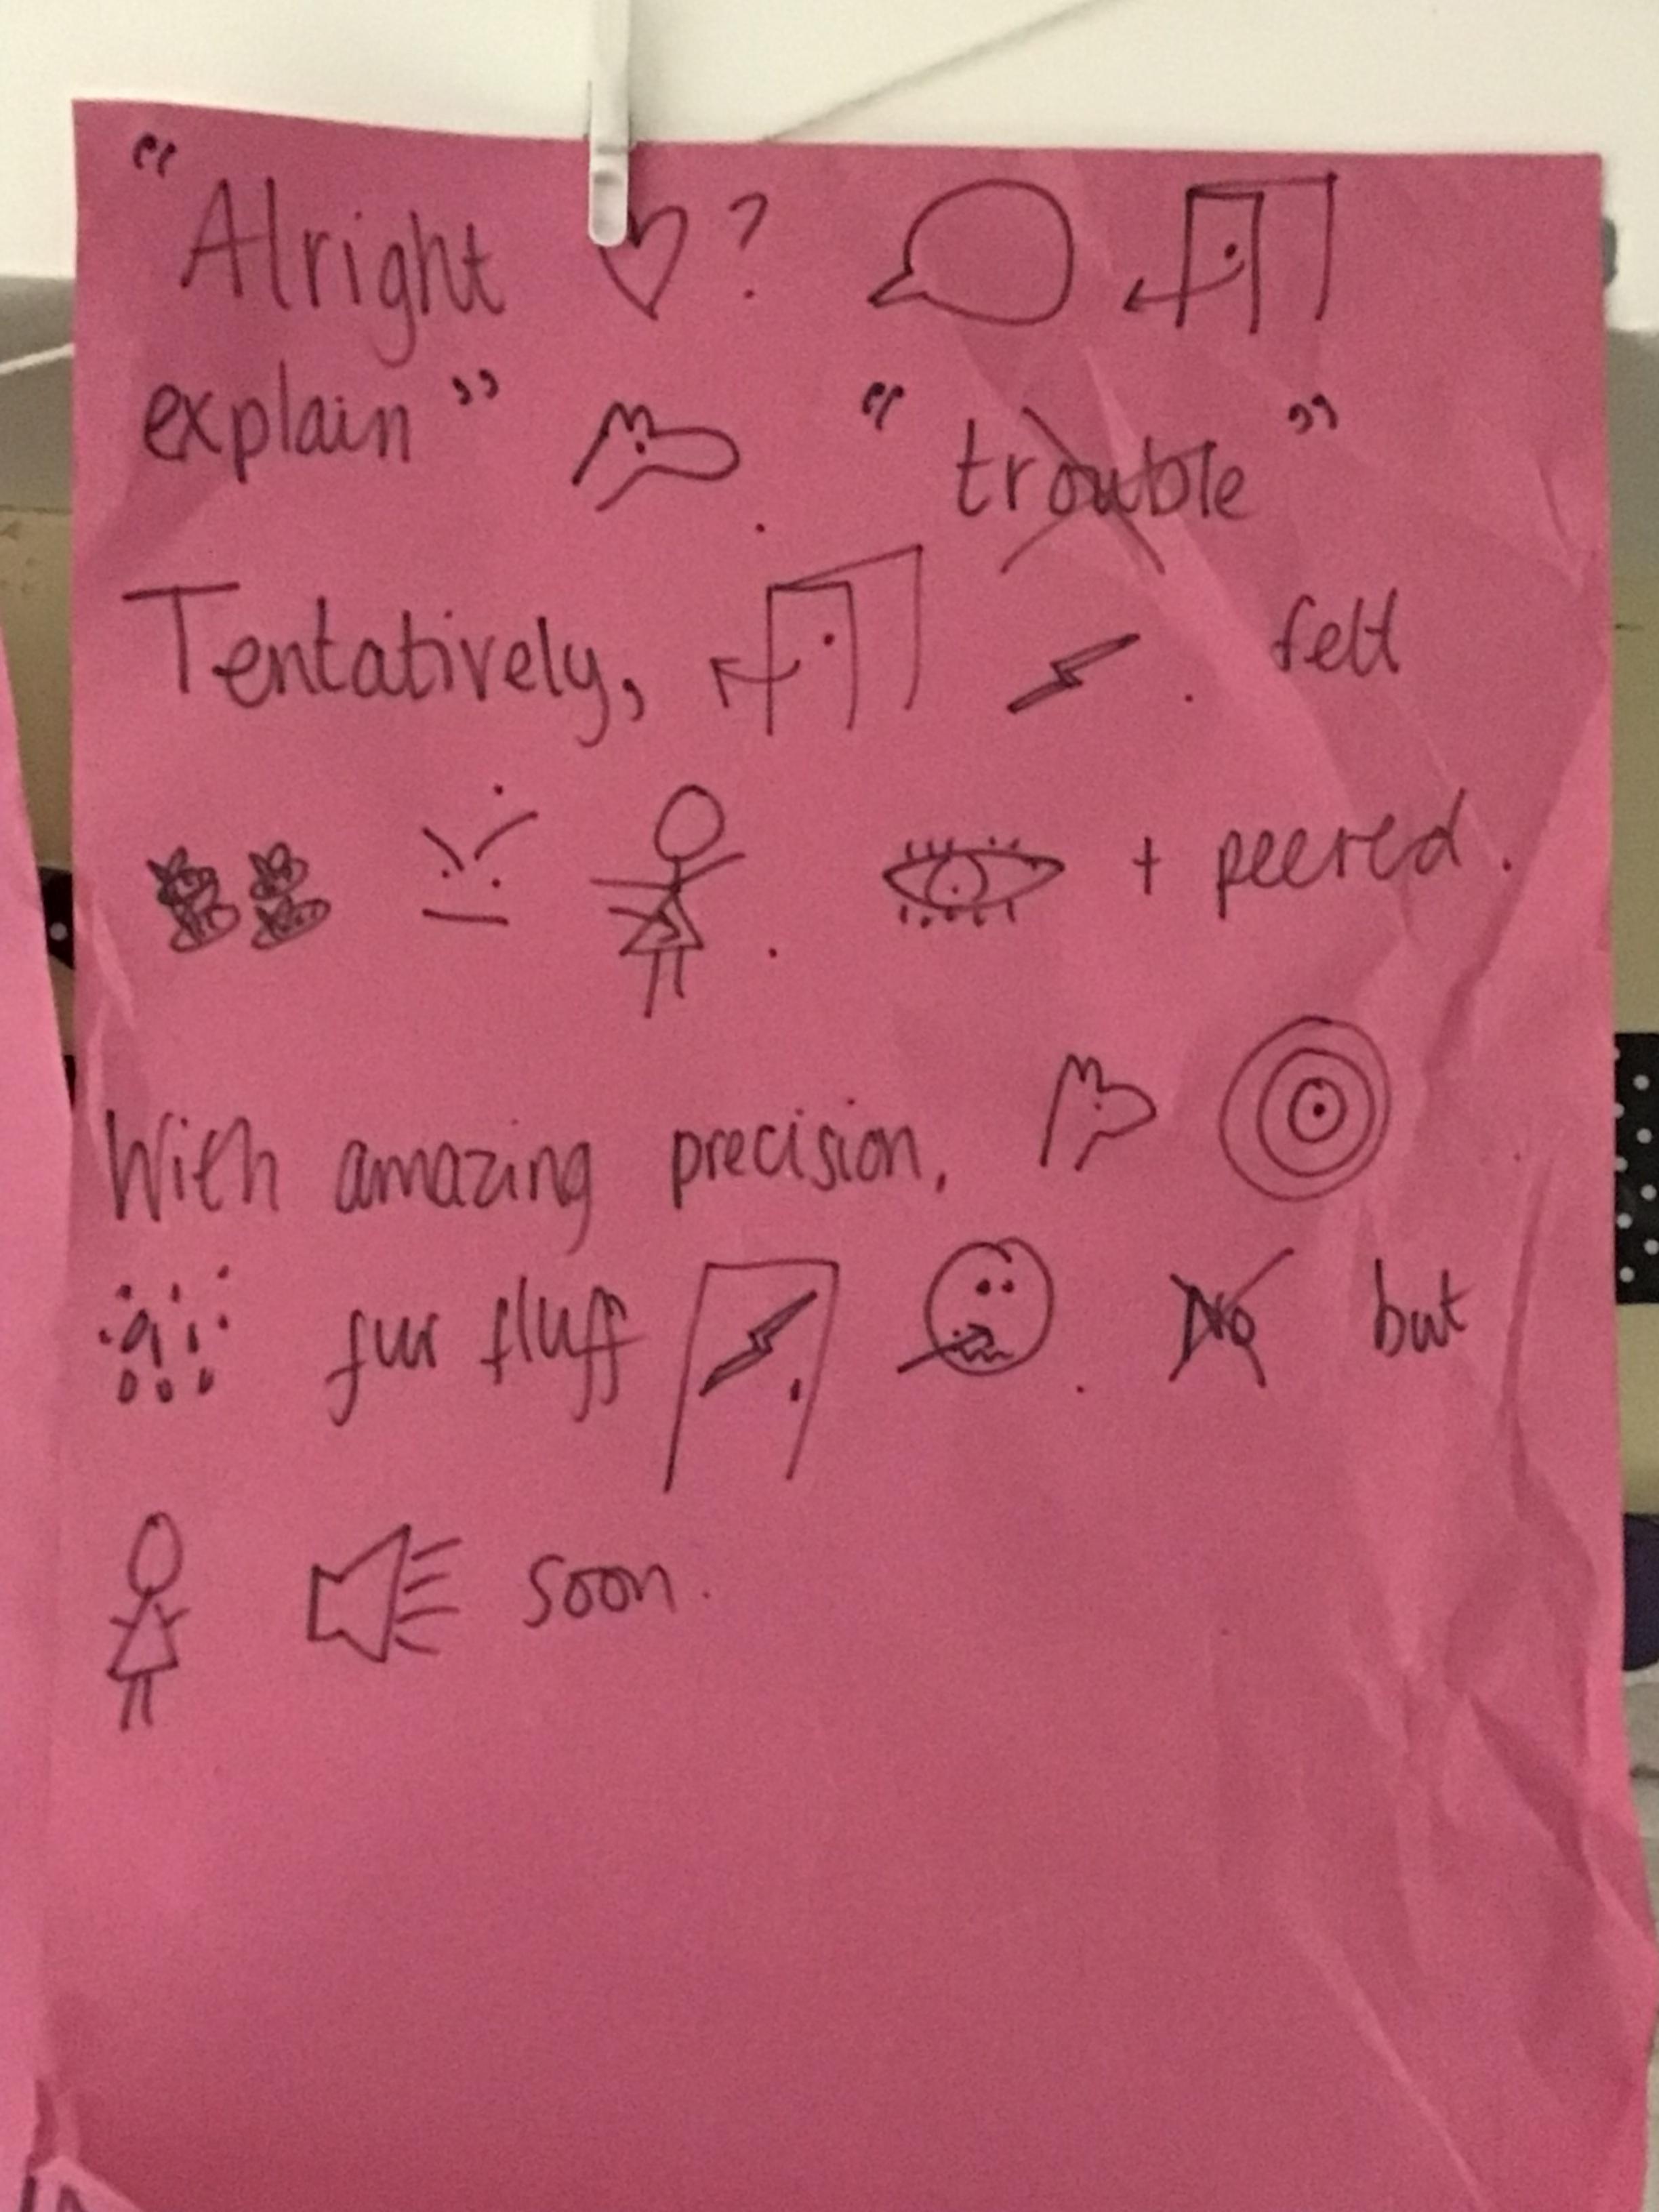 "Alright ?
explain" . "trouble"
Tentatively, . felt
. + peered.
With amazing precision,
fur fluff . No but
soon.